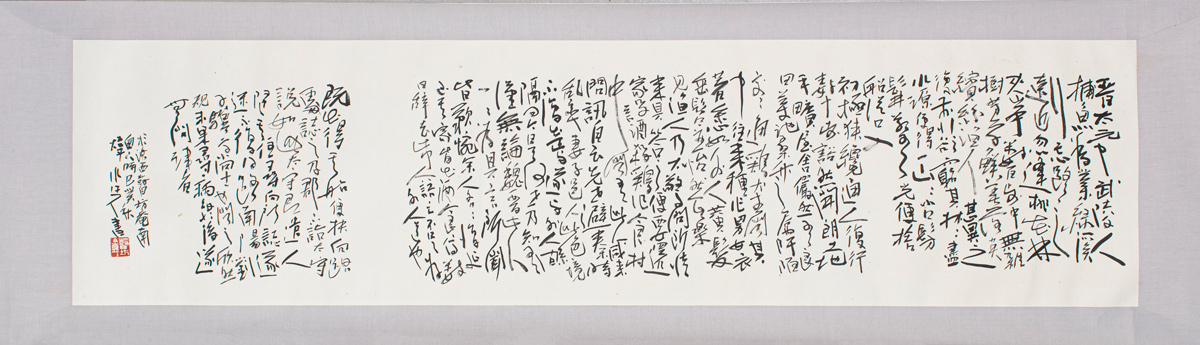 晋太元中武陵人
捕魚為業緣溪
行忘路之
遠近忽逢桃花林
夾岸數百步中無雜
樹芳草鮮美落英
繽紛漁人甚異之
復前行欲窮其林林盡
水源便得一山山有小口髣
髴若有光便捨
船從口入
初極狹纔通人復行
數十步豁然開朗土地
平曠屋舍儼然有良
田美池桑竹之屬阡陌
交通雞犬相聞其
中往來種作男女衣
著悉如外人黃髮
垂髫並怡然自樂
見漁人乃大驚問所從
來具答之便要還
家設酒殺雞作食村
中聞有此人咸來
問訊自云先世避秦時
亂率妻子邑人來此絕境
不復出焉遂與外人間
隔問今是何世乃不知有
漢無論魏晉此人
一一為具言所聞
皆歎惋餘人各復延
至其家皆出酒食停數
日辭去此中人語云不足為外人道也
既出得其船便扶向路
處處誌之及郡下詣太守
說如此太守即遣人
隨其往尋向所誌遂
迷不復得路南陽劉
子驥高尚士也聞之欣然
規往未果尋病終後遂
無問津者